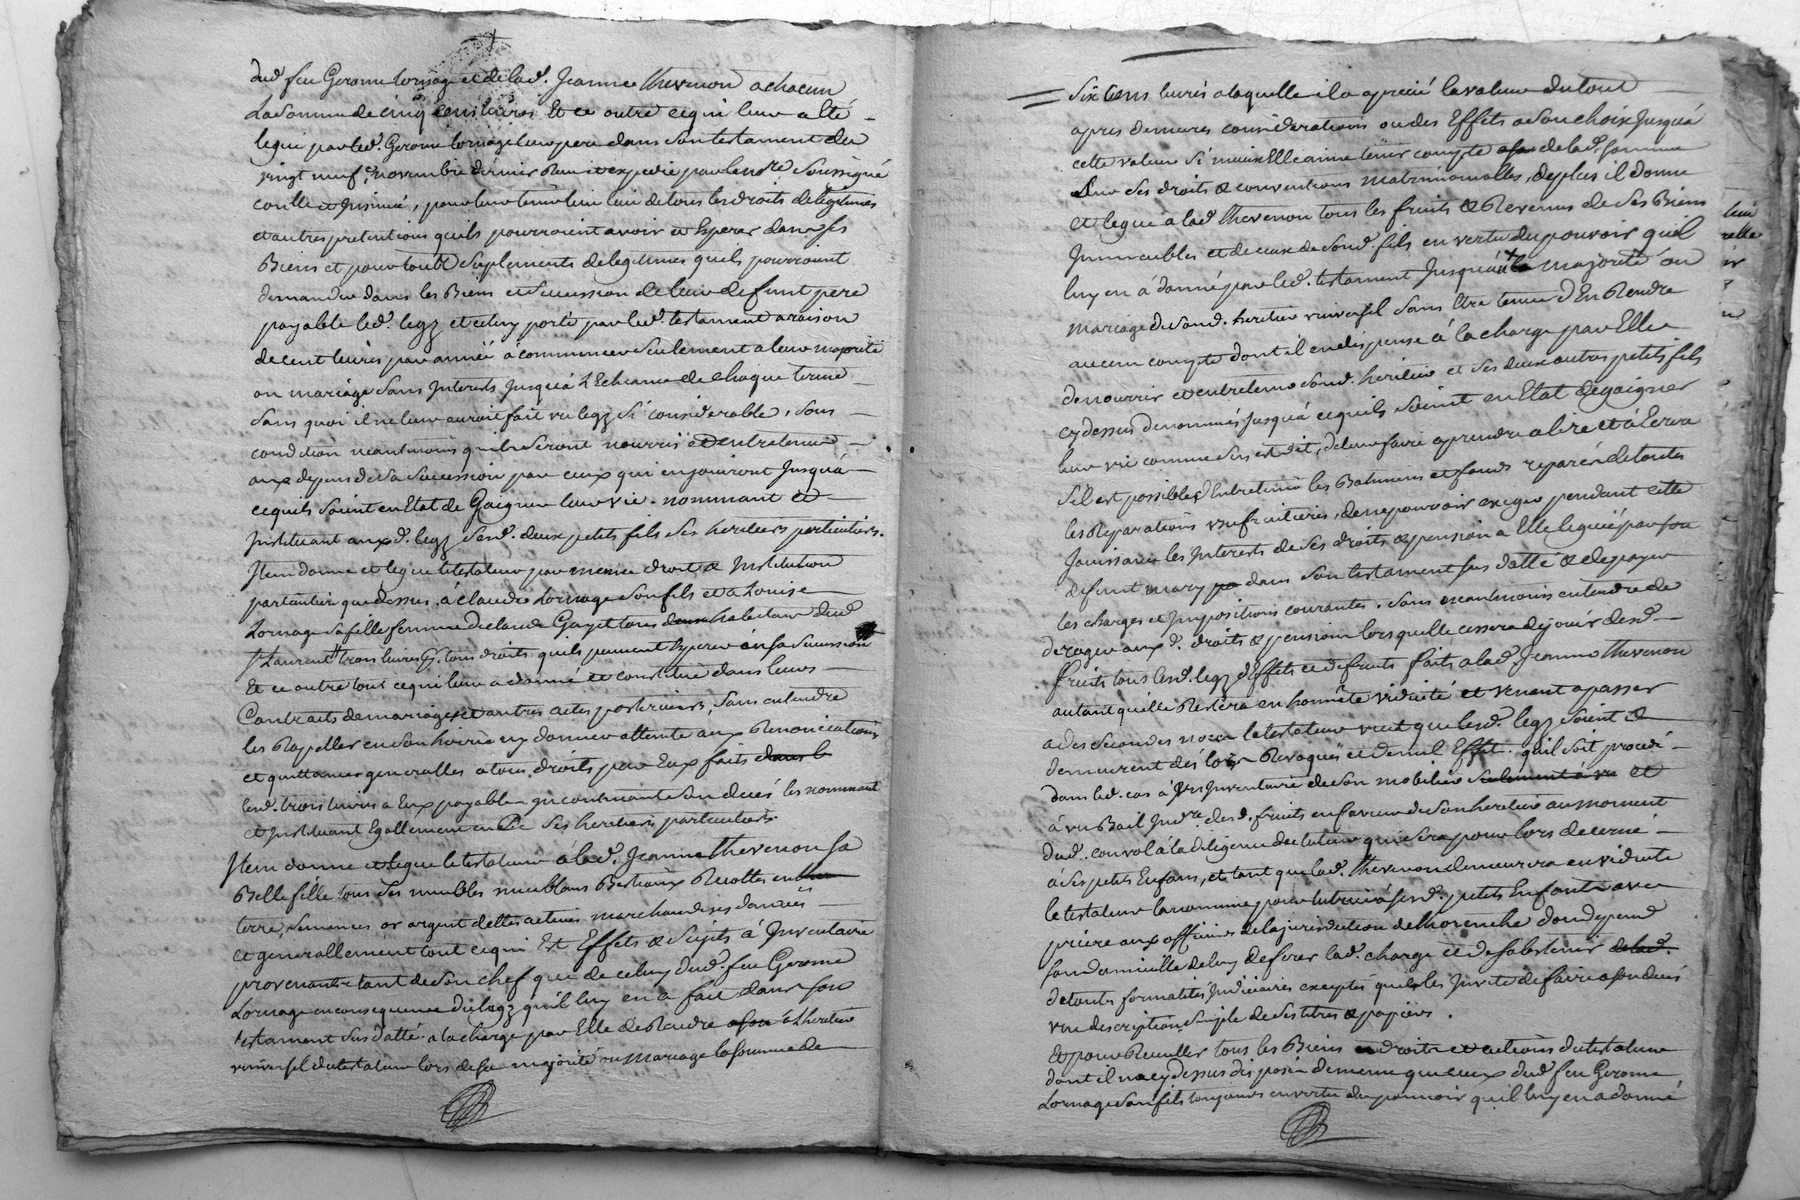 dud. feu Gerome Lornage et de lad. Jeanne Thevenon a chacun
La Somme de cinq cens livres Et ce outre ce qui leur a Eté
legué par led. Gerome Lornage leur pere dans son testament du
vingt neuf novembre dernier Reçu et expedié par le no.re Soussigné
contlé et Jnsinué, pour leur tenir lieu de tous les droits de legitimes
et autres pretentions quils pourroient avoir et Esperer dans ses
Biens et pour touts Suplements de legitimes quils pourroient
demander dans les Biens et succession de leur defunt pere
payable led. legz et celuy porté par led. testament a raison
de cent livres par année à commencer seulement a leur majorité
ou mariage sans Jnterests Jusqua L'Echeance de chaque terme
Sans quoi il ne leur auroit fait un legz si considerable, sous
condition neantmoins quils seront nourris et entretenus
aux depens de sa succession par ceux qui en jouiront Jusquà
ce quils soient en Etat de Gaigner leur vie. nommant et
Jnstituant auxd. legz sesd. deux petits fils ses heritiers particuliers.
Jtem donne et legue le testateur par meme droit et Jnstitution
particuliere que dessus, à claude Lornage son fils et a Louise
Lornage sa fille femme de claude Gayet tous habitans dud.
St Laurent trois livres tous droits quils peuvent Esperer en sa succession
Et ce outre tout ce qui leur a donné et constitué dans leurs
Contracts de mariages et autres actes posterieurs, sans entendre
les Rapeller en son hoirie ny donner atteinte aux Renonciations
et quittances generalles a tous droits par Eux faits dans le
lesd. trois livres a Eux payable incontinant son decés les nommant
et Jnstituant Egallement en Ce ses heritiers particuliers.
Jtem donne et legue le testateur à lad. Jeanne Thevenon sa
Belle fille tous ses meubles meublans Bestiaux Recoltes en
terre, semences or argent dettes actives marchandises danrées
et generallement tout ce qui Est Effets & sujets à Jnventaire
provenants tant de son chef que de celuy dud. feu Gerome
Lornage en consequence du legz qu'il luy en a fait dans son
testament sus datté a la charge par Elle de Rendre a son a L'heritier
universel du testateur lors de sa majorité ou Mariage la somme de
Six Cens livres a laquelle il a aprecié la valeur du tout
apres demeures considerations ou des Effets a son choix Jusquà
cette valeur si mieux Elle aime tenir compte de lad. somme
Sur ses droits & conventions matrimonialles, de plus il donne
et legue a lad. Thevenon tous les fruits & Revenus de ses Biens
Jmmeubles et de ceux de sond. fils en vertu du pouvoir quil
luy en á donné par led. testament Jusquà la majorité ou
mariage de sond. heritier universel sans Etre tenue d'En Rendre
aucun compte dont il en dispense à la charge par Elle
de nourrir et entretenir sond. heritier et ses deux autres petits fils
cy dessus denommés Jusqua ce quils soient en Etat de gaigner
leur vie comme sus est dit, de leur faire aprendre a lire et à Ecrire
s'il est possible d'Entretenir les Batimens et fonds reparés de toutes
les Reparations usufruitieres, de ne pouvoir exiger pendant cette
Jouissance les Jnterests de ses droits & pension a Elle legué par son
defunt mary dans son testament sus datté & de payer
les charges et Jmpositions courantes. Sans neantmoins entendre de
deroger auxd. droits & pension lors quelle cessera de jouir desd.
fruits tous lesd. legz d'Effets et de fruits faits a lad. Jeanne Thevenon
autant quelle Restera en honnête viduité et venant a passer
a des secondes noces le testateur veut que lesd. legz soient et
demeurent dés lors Revoqués et de nul Effet. quil soit procedé
dans led. cas à Un Jnventaire de son mobilier seulement à vu et
à un Bail Jud.re desd. fruits en faveur de son heritier au moment
dud. convol á la diligence du tuteur qui sera pour lors decerné
á ses petits Enfans, et tant que lad. Thevenon demeurera en viduité
le testateur la nomme pour tutrice à sesd. petits Enfants avec
priere aux officiers de la jurisdiction de Thorenche dont depend
son domicille de luy deferer lad. charge et de s'abstenir de lad.
de toutes formalités Judiciaires exceptés quils les Jnvite de faire a son decés
une description simple de ses titres & papiers.
Et pour Recuillir tous les Biens droits et actions du testateur
dont il n'a cy dessus disposé de meme que ceux dud. feu Gerome
Lornage son fils toujours en vertu du pouvoir qu'il luy en a donné